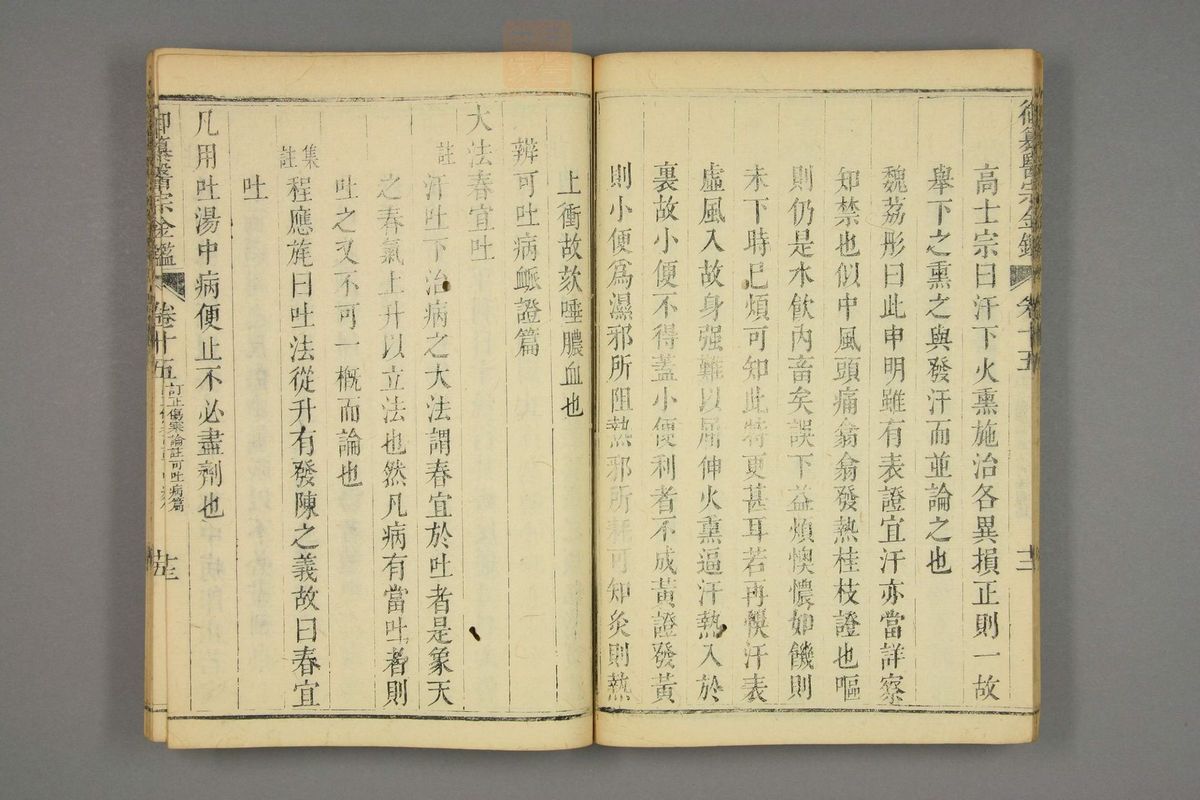 御纂醫宗金鑑 卷十五
高士宗曰汗下火熏施治各異損正則一故
舉下之熏之與發汗而並論之也
魏荔彤曰此申明雖有表證宜汗亦當詳察
知禁也似中風頭痛翕翕發熱桂枝證也嘔
則仍是水飲內畜矣誤下益煩懊憹如饑則
未下時已煩可知此特更甚耳若再悞汗表
虛風入故身强難以屈伸火熏逼汗熱入於
裏故小便不得蓋小便利者不成黃證發黃
則小便爲濕邪所阻熱邪所耗可知灸則熱
上衝故欬唾膿血也
辨可吐病脈證篇
大法春宜吐
註 汗吐下治病之大法謂春宜於吐者是象天
之春氣上升以立法也然凡病有當吐者則
吐之又不可一概而論也
集註 程應旄曰吐法從升有發陳之義故曰春宜
吐
凡用吐湯中病便止不必盡劑也
御纂醫宗金鑑 卷十五 訂正傷寒論註可吐病篇